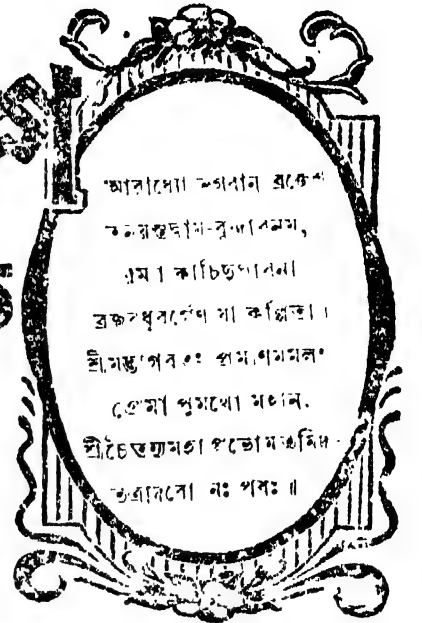 আরাধ্যো ভগবান ব্রজেশ
তনয়স্তদ্ধাম-বৃন্দাবনম,
রম্যা কাচিদুপাসনা
ব্রজবধূবর্গেণ যা কল্পিতা।
শ্রীমদ্ভাগবতং প্রমাণমমলং
প্রেমা পুমর্থো মহান.
শ্রীচৈতন্যমহাপ্রভোর্মতমিদং-
তত্রাদরো নঃ পরঃ॥